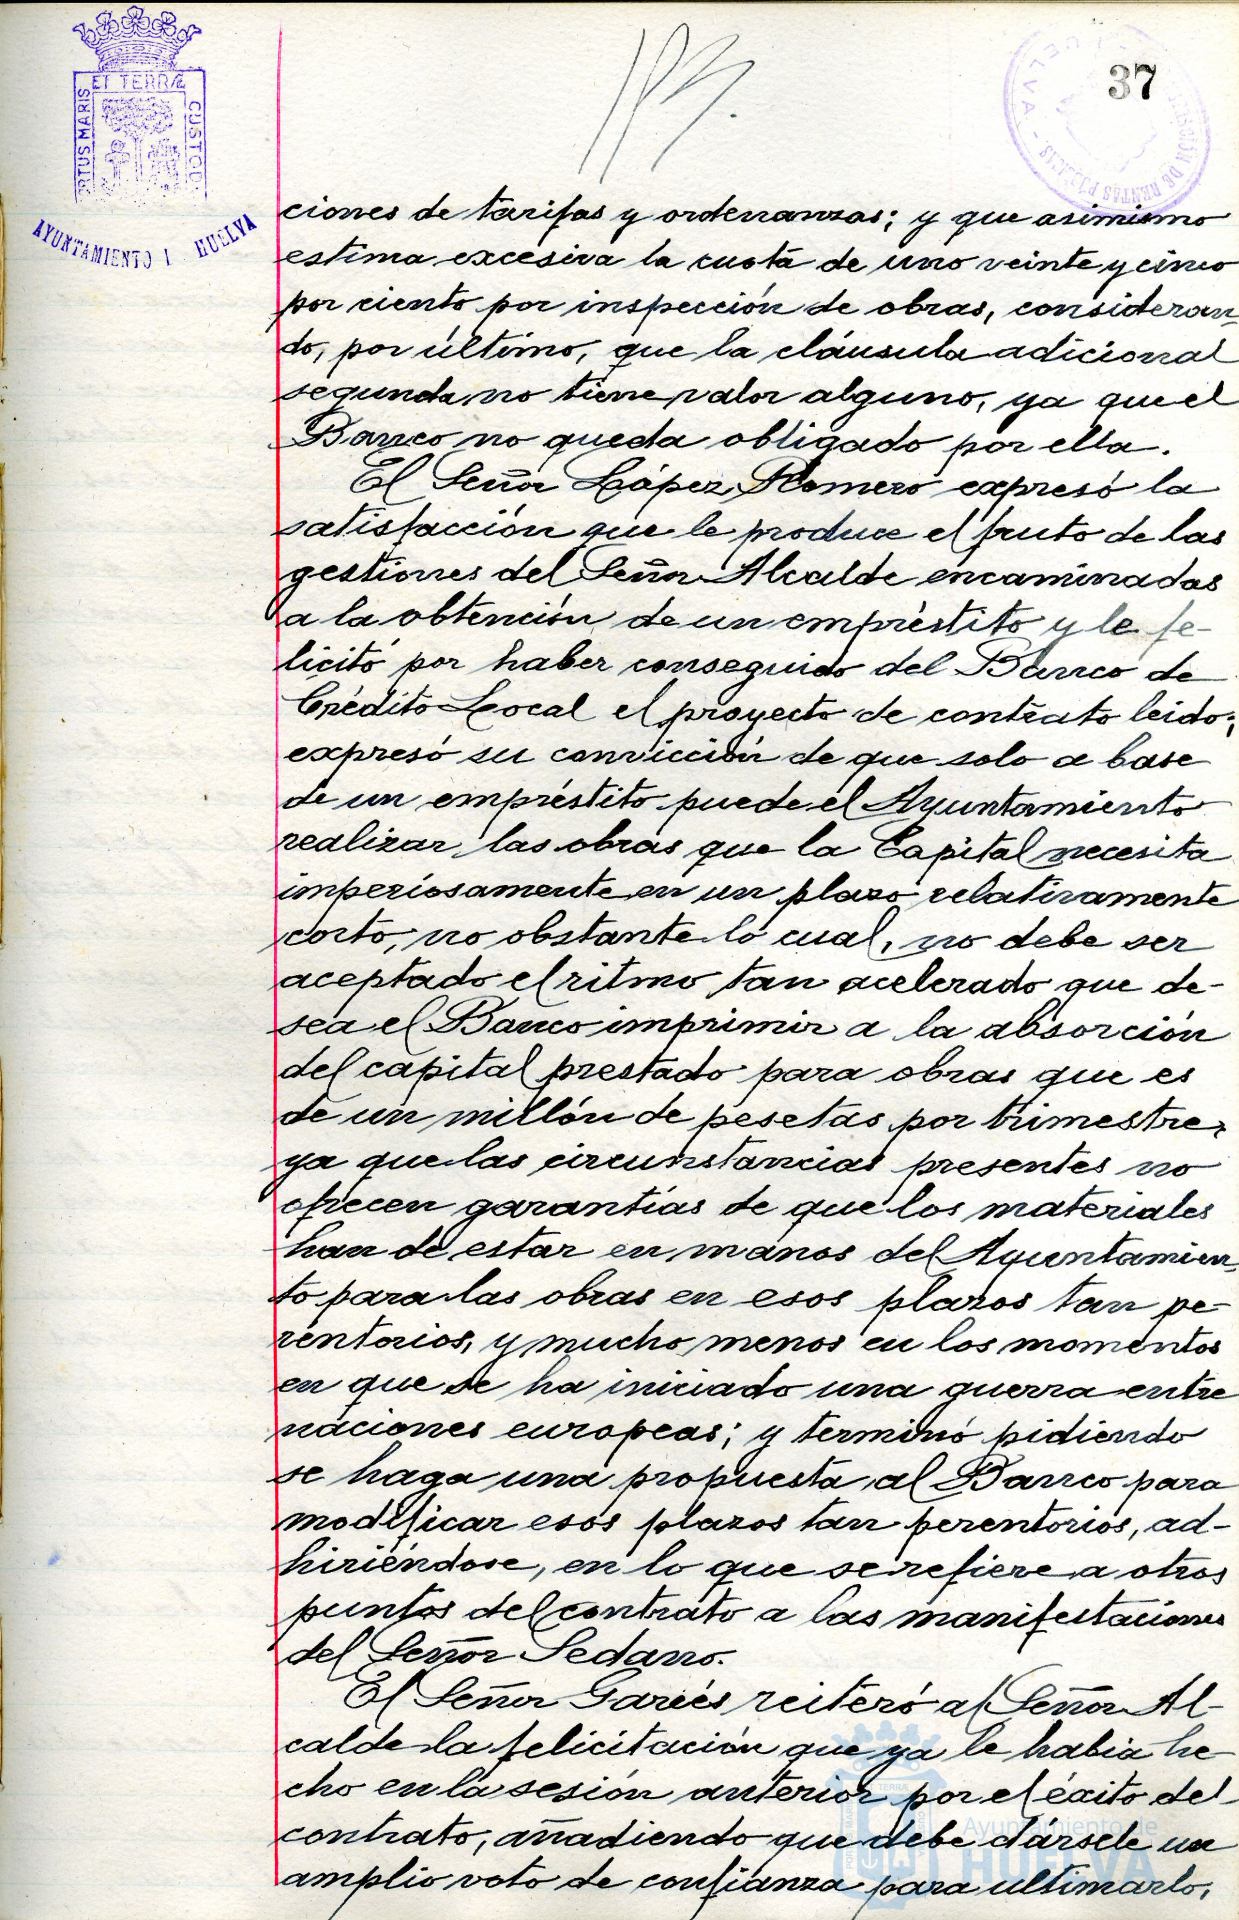 37
ET TERRÆ
RTUS MARIS
CUSTOD
AYUNTAMIENTO HUELVA
ciones de tarifas y ordenanzas; y que asimismo
estima excesiva la cuota de uno veinte y cinco
por ciento por inspección de obras, consideran-
do, por último, que la cláusula adicional
segunda no tiene valor alguno, ya que el
Banco no queda obligado por ella.
El Señor López Romero expresó la
satisfacción que le produce el fruto de las
gestiones del Señor Alcalde encaminadas
a la obtención de un empréstito y le fe-
licitó por haber conseguido del Banco de
Crédito Local el proyecto de contrato leido;
expresó su convicción de que solo a base
de un empréstito puede el Ayuntamiento
realizar las obras que la Capital necesita
imperiosamente en un plazo relativamente
corto, no obstante lo cual, no debe ser
aceptado el ritmo tan acelerado que de-
sea el Banco imprimir a la absorción
del capital prestado para obras que es
de un millón de pesetas por trimestre,
ya que las circunstancias presentes no
ofrecen garantías de que los materiales
han de estar en manos del Ayuntamien-
to para las obras en esos plazos tan pe-
rentorios, y mucho menos en los momentos
en que se ha iniciado una guerra entre
naciones europeas; y terminó pidiendo
se haga una propuesta al Banco para
modificar esos plazos tan perentorios, ad-
hiriéndose, en lo que se refiere a otros
puntos del contrato a las manifestaciones
del Señor Sedano.
El Señor Garcés reiteró al Señor Al-
calde la felicitación que ya le habia he-
cho en la sesión anterior por el éxito del
contrato, añadiendo que debe dársele un
amplio voto de confianza para ultimarlo,
Ayuntamiento de
HUELVA